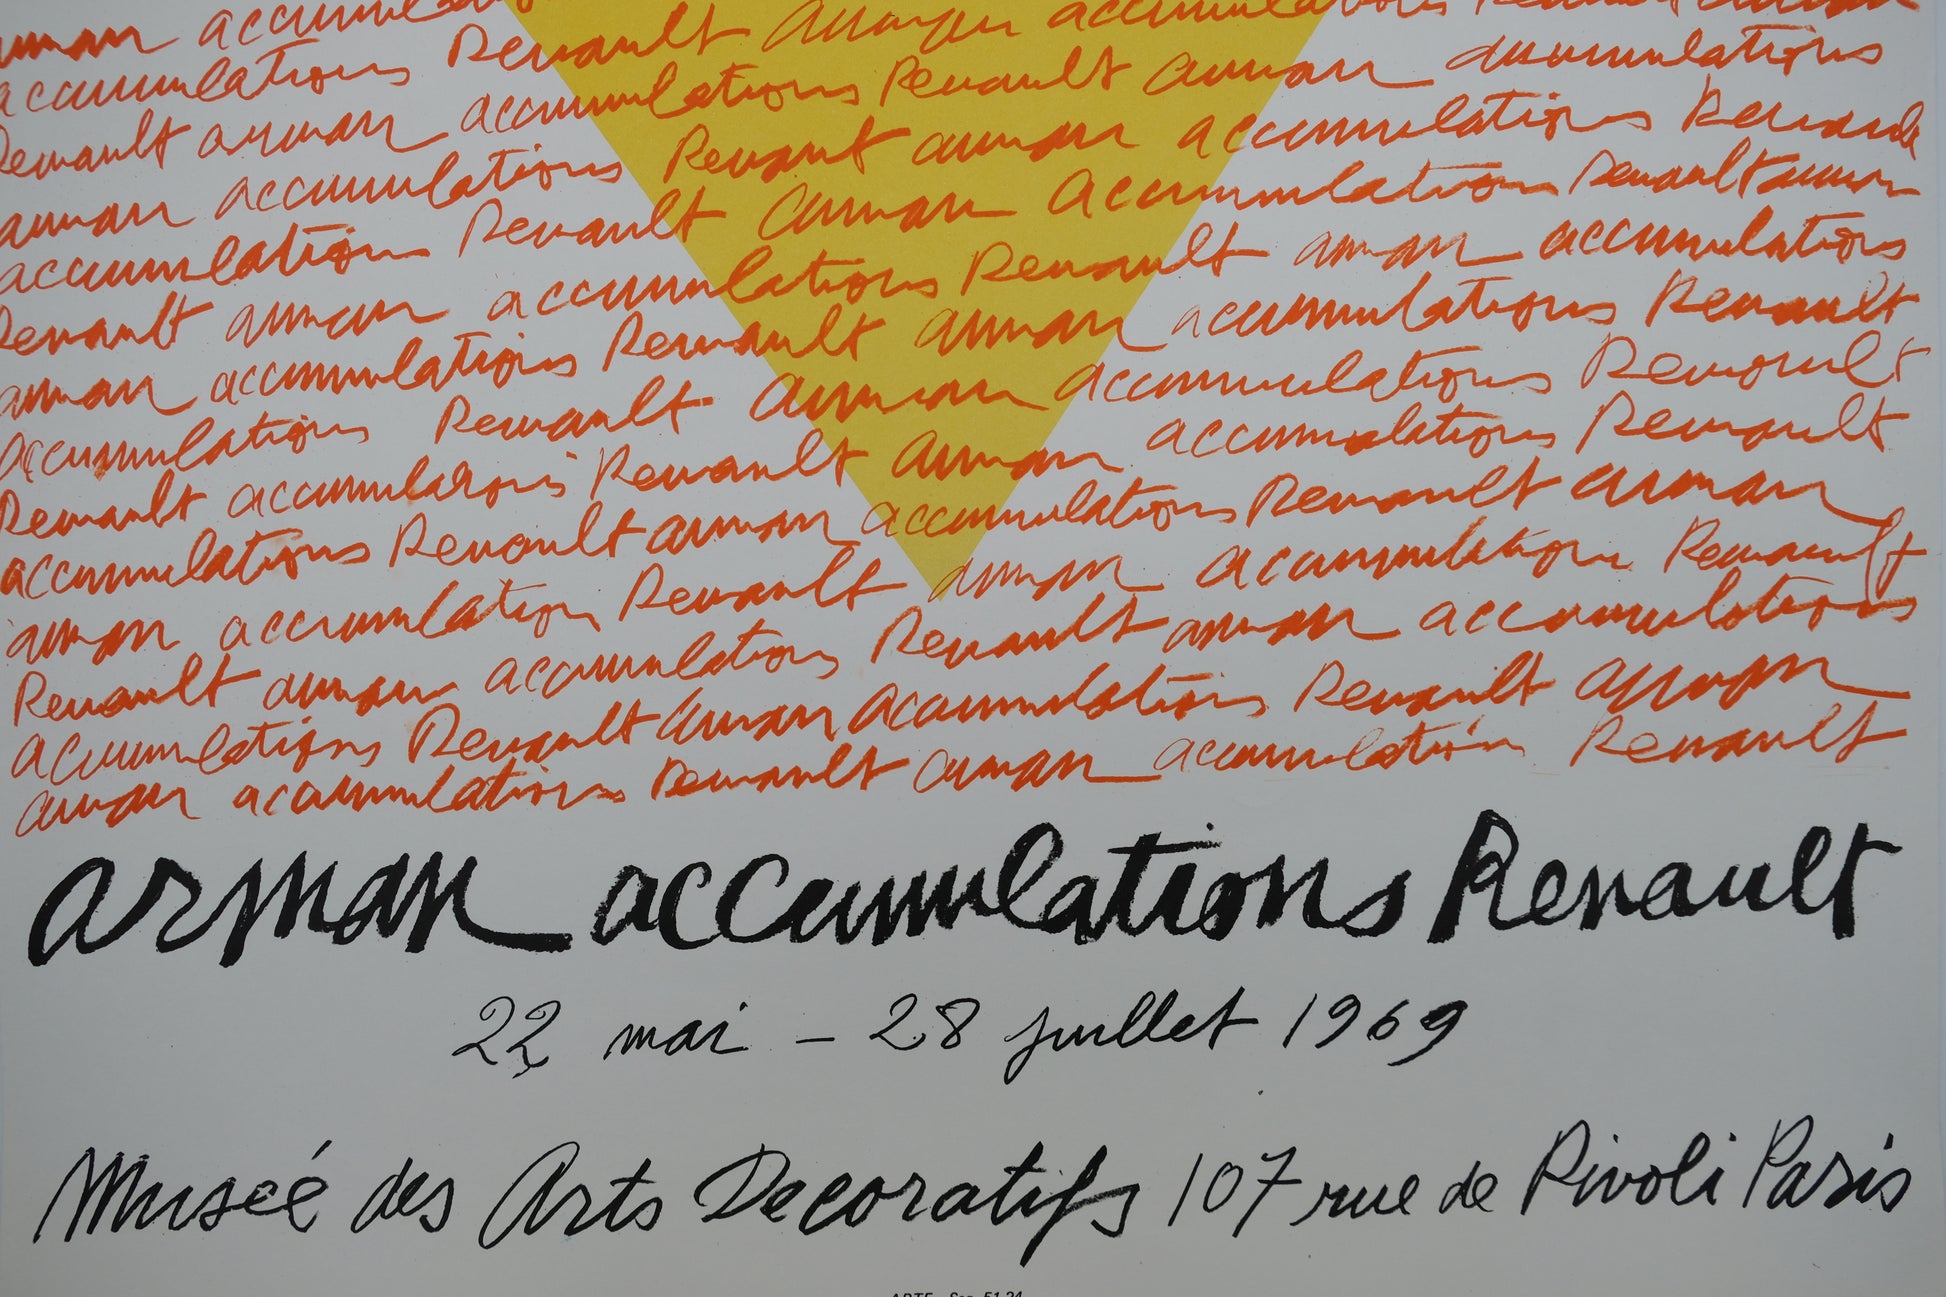 arman accumulations Renault arman accumulations Renault arman
accumulations Renault arman accumulations Renault arman accumulations
Renault arman accumulations Renault arman accumulations Renault
arman accumulations Renault arman accumulations Renault arman
accumulations Renault arman accumulations Renault arman accumulations
Renault arman accumulations Renault arman accumulations Renault
arman accumulations Renault arman accumulations Renault
accumulations Renault arman accumulations Renault
Renault accumulations Renault arman accumulations Renault arman
accumulations Renault arman accumulations Renault
arman accumulations Renault arman accumulations
Renault arman accumulations Renault arman accumulations Renault arman
accumulations Renault arman accumulations Renault arman
arman accumulations Renault arman accumulations Renault
arman accumulations Renault
22 mai - 28 juillet 1969
Museé des Arts Decoratifs 107 rue de Rivoli Paris